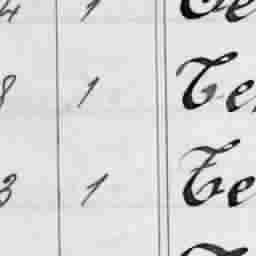 4 1 Te
8 1 Te
3 1 Te